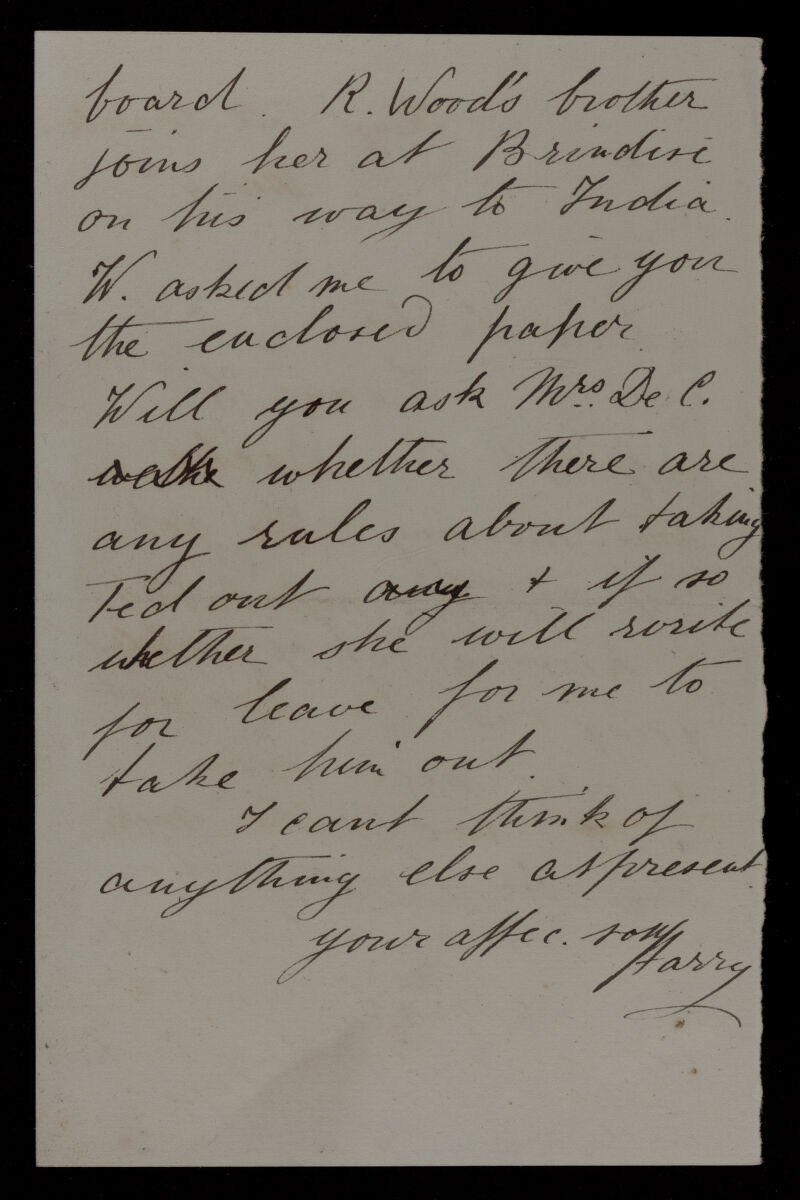 board. R. Wood's brother
joins her at Brindisi
on his way to India.
W. asked me to give you
the enclosed paper
Will you ask Mrs. De C.
whether there are
any rules about taking
Ted out any & if so
whether she will write
for leave for me to
take him out.
I cant think of
anything else at present
your affec. son
Harry